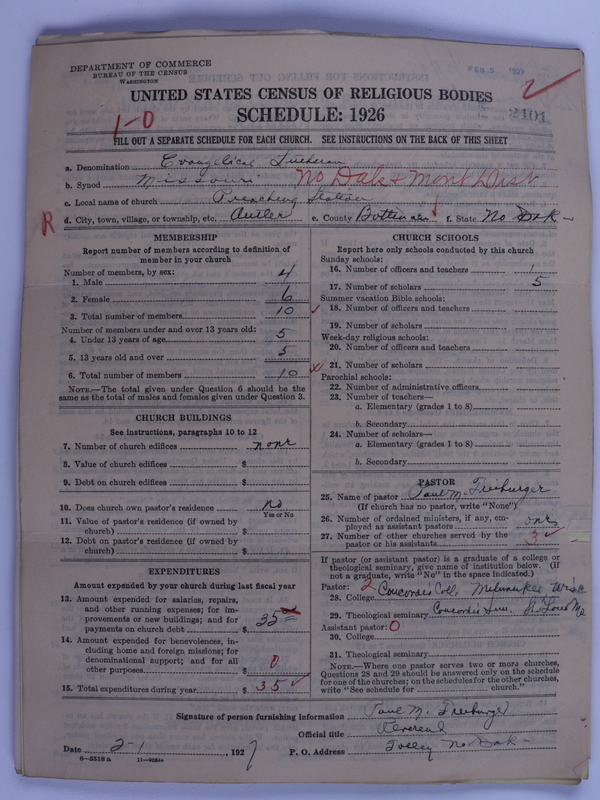 DEPARTMENT OF COMMERCE
BUREAU OF THE CENSUS
WASHINGTON
UNITED STATES CENSUS OF RELIGIOUS BODIES
SCHEDULE: 1926
1-0
FILL OUT A SEPARATE SCHEDULE FOR EACH CHURCH. SEE INSTRUCTIONS ON THE BACK OF THIS SHEET
a. Denomination Evangelical Lutheran
b. Synod Missouri No Dak & Mont Dist
c. Local name of church Preaching Station
R d. City, town, village, or township, etc. Antler e. County Bottineau f. State No Dak
MEMBERSHIP
Report number of members according to definition of
member in your church
Number of members, by sex:
1. Male 4
2. Female 6
3. Total number of members 10
Number of members under and over 13 years old:
4. Under 13 years of age 5
5. 13 years old and over 5
6. Total number of members 10
NOTE.—The total given under Question 6 should be the
same as the total of males and females given under Question 3.
CHURCH BUILDINGS
See instructions, paragraphs 10 to 12
7. Number of church edifices none
8. Value of church edifices $
9. Debt on church edifices $
10. Does church own pastor's residence no
Yes or No
11. Value of pastor's residence (if owned by
church) $
12. Debt on pastor's residence (if owned by
church) $
EXPENDITURES
Amount expended by your church during last fiscal year
13. Amount expended for salaries, repairs,
and other running expenses; for im-
provements or new buildings; and for
payments on church debt $ 35
14. Amount expended for benevolences, in-
cluding home and foreign missions; for
denominational support; and for all
other purposes $ 0
15. Total expenditures during year $ 35
CHURCH SCHOOLS
Report here only schools conducted by this church
Sunday schools:
16. Number of officers and teachers 1
17. Number of scholars 5
Summer vacation Bible schools:
18. Number of officers and teachers
19. Number of scholars
Week-day religious schools:
20. Number of officers and teachers
21. Number of scholars
Parochial schools:
22. Number of administrative officers
23. Number of teachers—
a. Elementary (grades 1 to 8)
b. Secondary
24. Number of scholars—
a. Elementary (grades 1 to 8)
b. Secondary
PASTOR
25. Name of pastor Paul M. Freiburger
(If church has no pastor, write "None")
26. Number of ordained ministers, if any, em-
ployed as assistant pastors one
27. Number of other churches served by the
pastor or his assistants 3
If pastor (or assistant pastor) is a graduate of a college or
theological seminary, give name of institution below. (If
not a graduate, write "No" in the space indicated.)
Pastor: 2
28. College Concordia Coll. Milwaukee Wisc
29. Theological seminary Concordia Sem. St Louis Mo
Assistant pastor: 0
30. College
31. Theological seminary
NOTE.—Where one pastor serves two or more churches,
Questions 28 and 29 should be answered only on the schedule
for one of the churches; on the schedules for the other churches,
write "See schedule for church."
Signature of person furnishing information Paul M. Freiburger
Official title Reverend
Date 2-1, 1927 P. O. Address Tolley No Dak
8—5318a 11—9084a